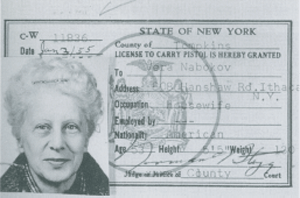 C-W 11836 STATE OF NEW YORK
Date Jan 3/55 County of Tompkins
LICENSE TO CARRY PISTOL IS HEREBY GRANTED
To Vera Nabokov
Address Hanshaw Rd. Ithaca
N.Y.
Occupation Housewife
Employed by
Nationality American
Age 53 Height Weight 120
Judge or Justice of County Court